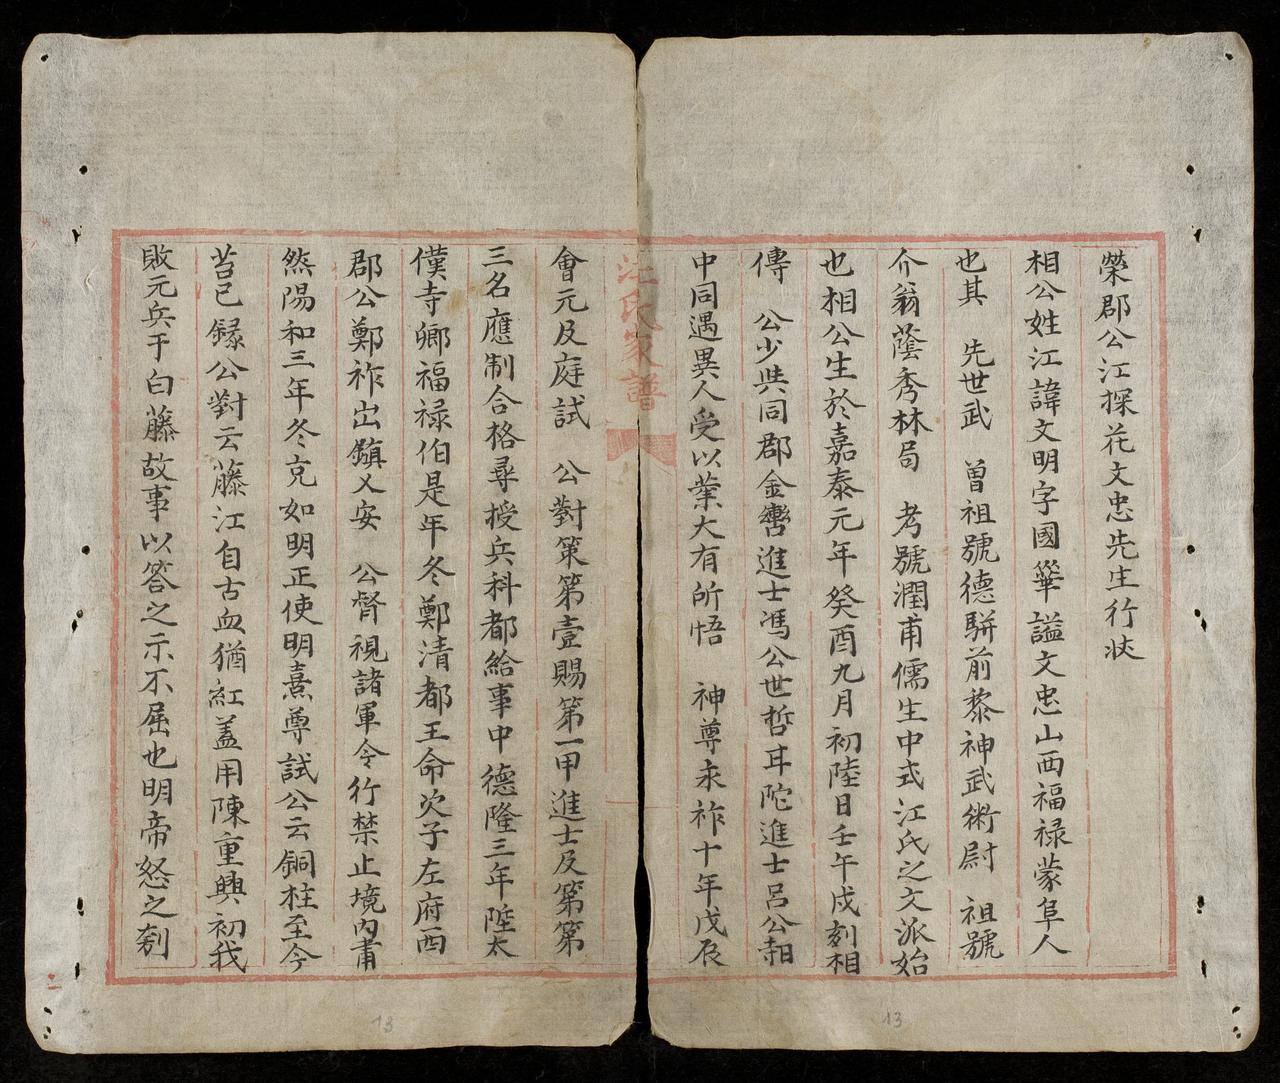 榮郡公江探花文忠先生行狀
相公姓江諱文明字國華謚文忠山西福禄蒙阜人
也其 先世武 曾祖號德駢前黎神武術尉 祖號
介翁蔭秀林局 考號潤甫儒生中式江氏之文派始
也相公生於嘉泰元年癸酉九月初陸日壬午戍刻相
傳 公少與同郡金轡進士馮公世哲耳陀進士呂公
中同遇異人受以業大有所悟 神尊永祚十年戊辰
江氏家譜
會元及庭試 公對策第壹賜第一甲進士及第第
三名應制合格尋授兵科都給事中德隆三年陞太
僕寺卿福禄伯是年冬鄭清都王命次子左府西
郡公鄭祚出鎮乂安 公督視諸軍令行禁止境內肅
然陽和三年冬克如明正使明熹尊試公云銅柱至今
苔已緑公對云藤江自古血猶紅盖用陳重興初我
敗元兵于白藤故事以答之示不屈也明帝怒之刳
13
13